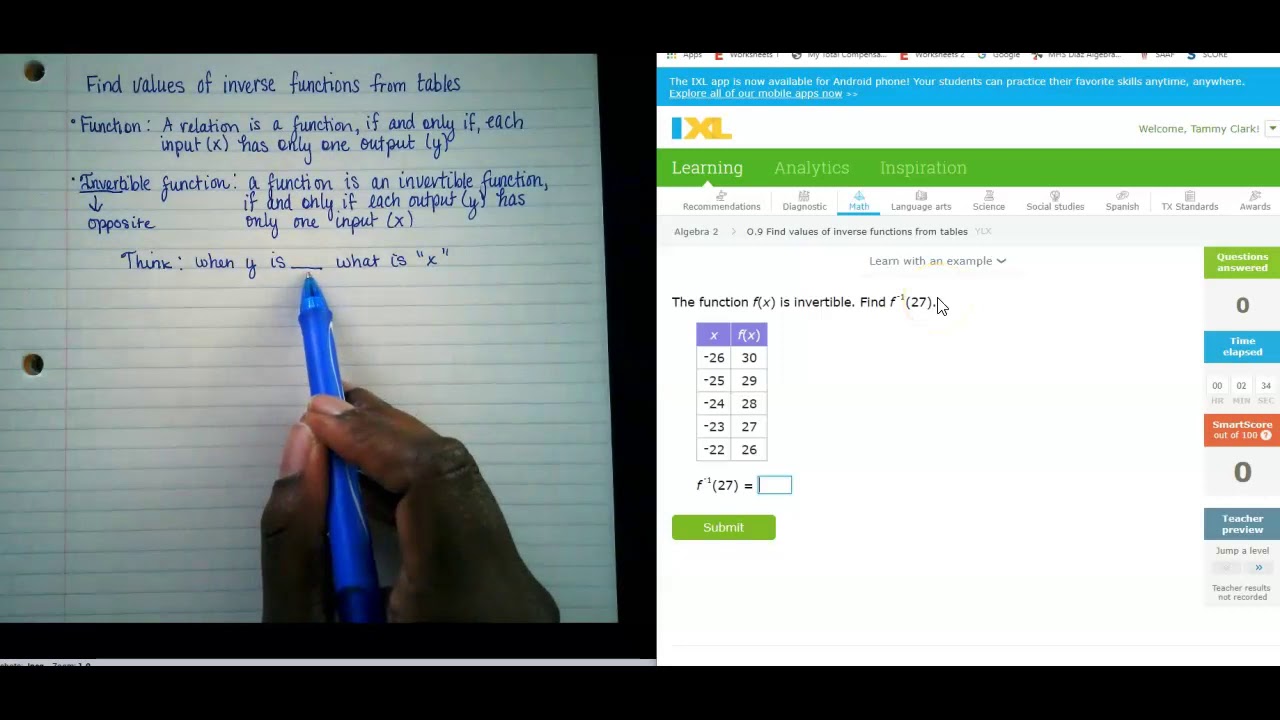 Find values of inverse functions from tables
• Function: A relation is a function, if and only if, each
input (x) has only one output (y)
• Invertible function: a function is an invertible function,
if and only if each output (y) has
only one input (x)
↓
opposite
Think: when y is ___ what is "x"
Apps Worksheets 1 My Total Compensa... Worksheets 2 Google MHS Diaz Algebra... SAAF SCORE
The IXL app is now available for Android phone! Your students can practice their favorite skills anytime, anywhere.
Explore all of our mobile apps now >>
IXL
Welcome, Tammy Clark!
Learning Analytics Inspiration
Recommendations Diagnostic Math Language arts Science Social studies Spanish TX Standards Awards
Algebra 2 > O.9 Find values of inverse functions from tables YLX
Learn with an example
The function f(x) is invertible. Find f⁻¹(27).
x f(x)
-26 30
-25 29
-24 28
-23 27
-22 26
f⁻¹(27) =
Submit
Questions
answered
0
Time
elapsed
00 02 34
HR MIN SEC
SmartScore
out of 100 ?
0
Teacher
preview
Jump a level
»
Teacher results
not recorded